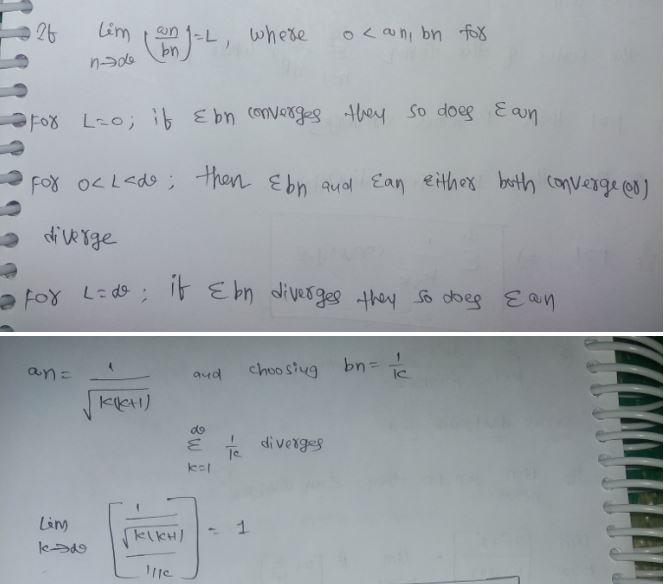 If lim n→∞ (an/bn) = L, where 0 < an, bn for
For L=0; if Σbn converges they so does Σan
For 0<L<∞; then Σbn and Σan either both converge (or)
diverge
For L=∞; if Σbn diverges they so does Σan
an = 1/√k(k+1) and choosing bn = 1/k
∞ Σ k=1 1/k diverges
Lim k→∞ [1/√k(k+1) / 1/k] = 1